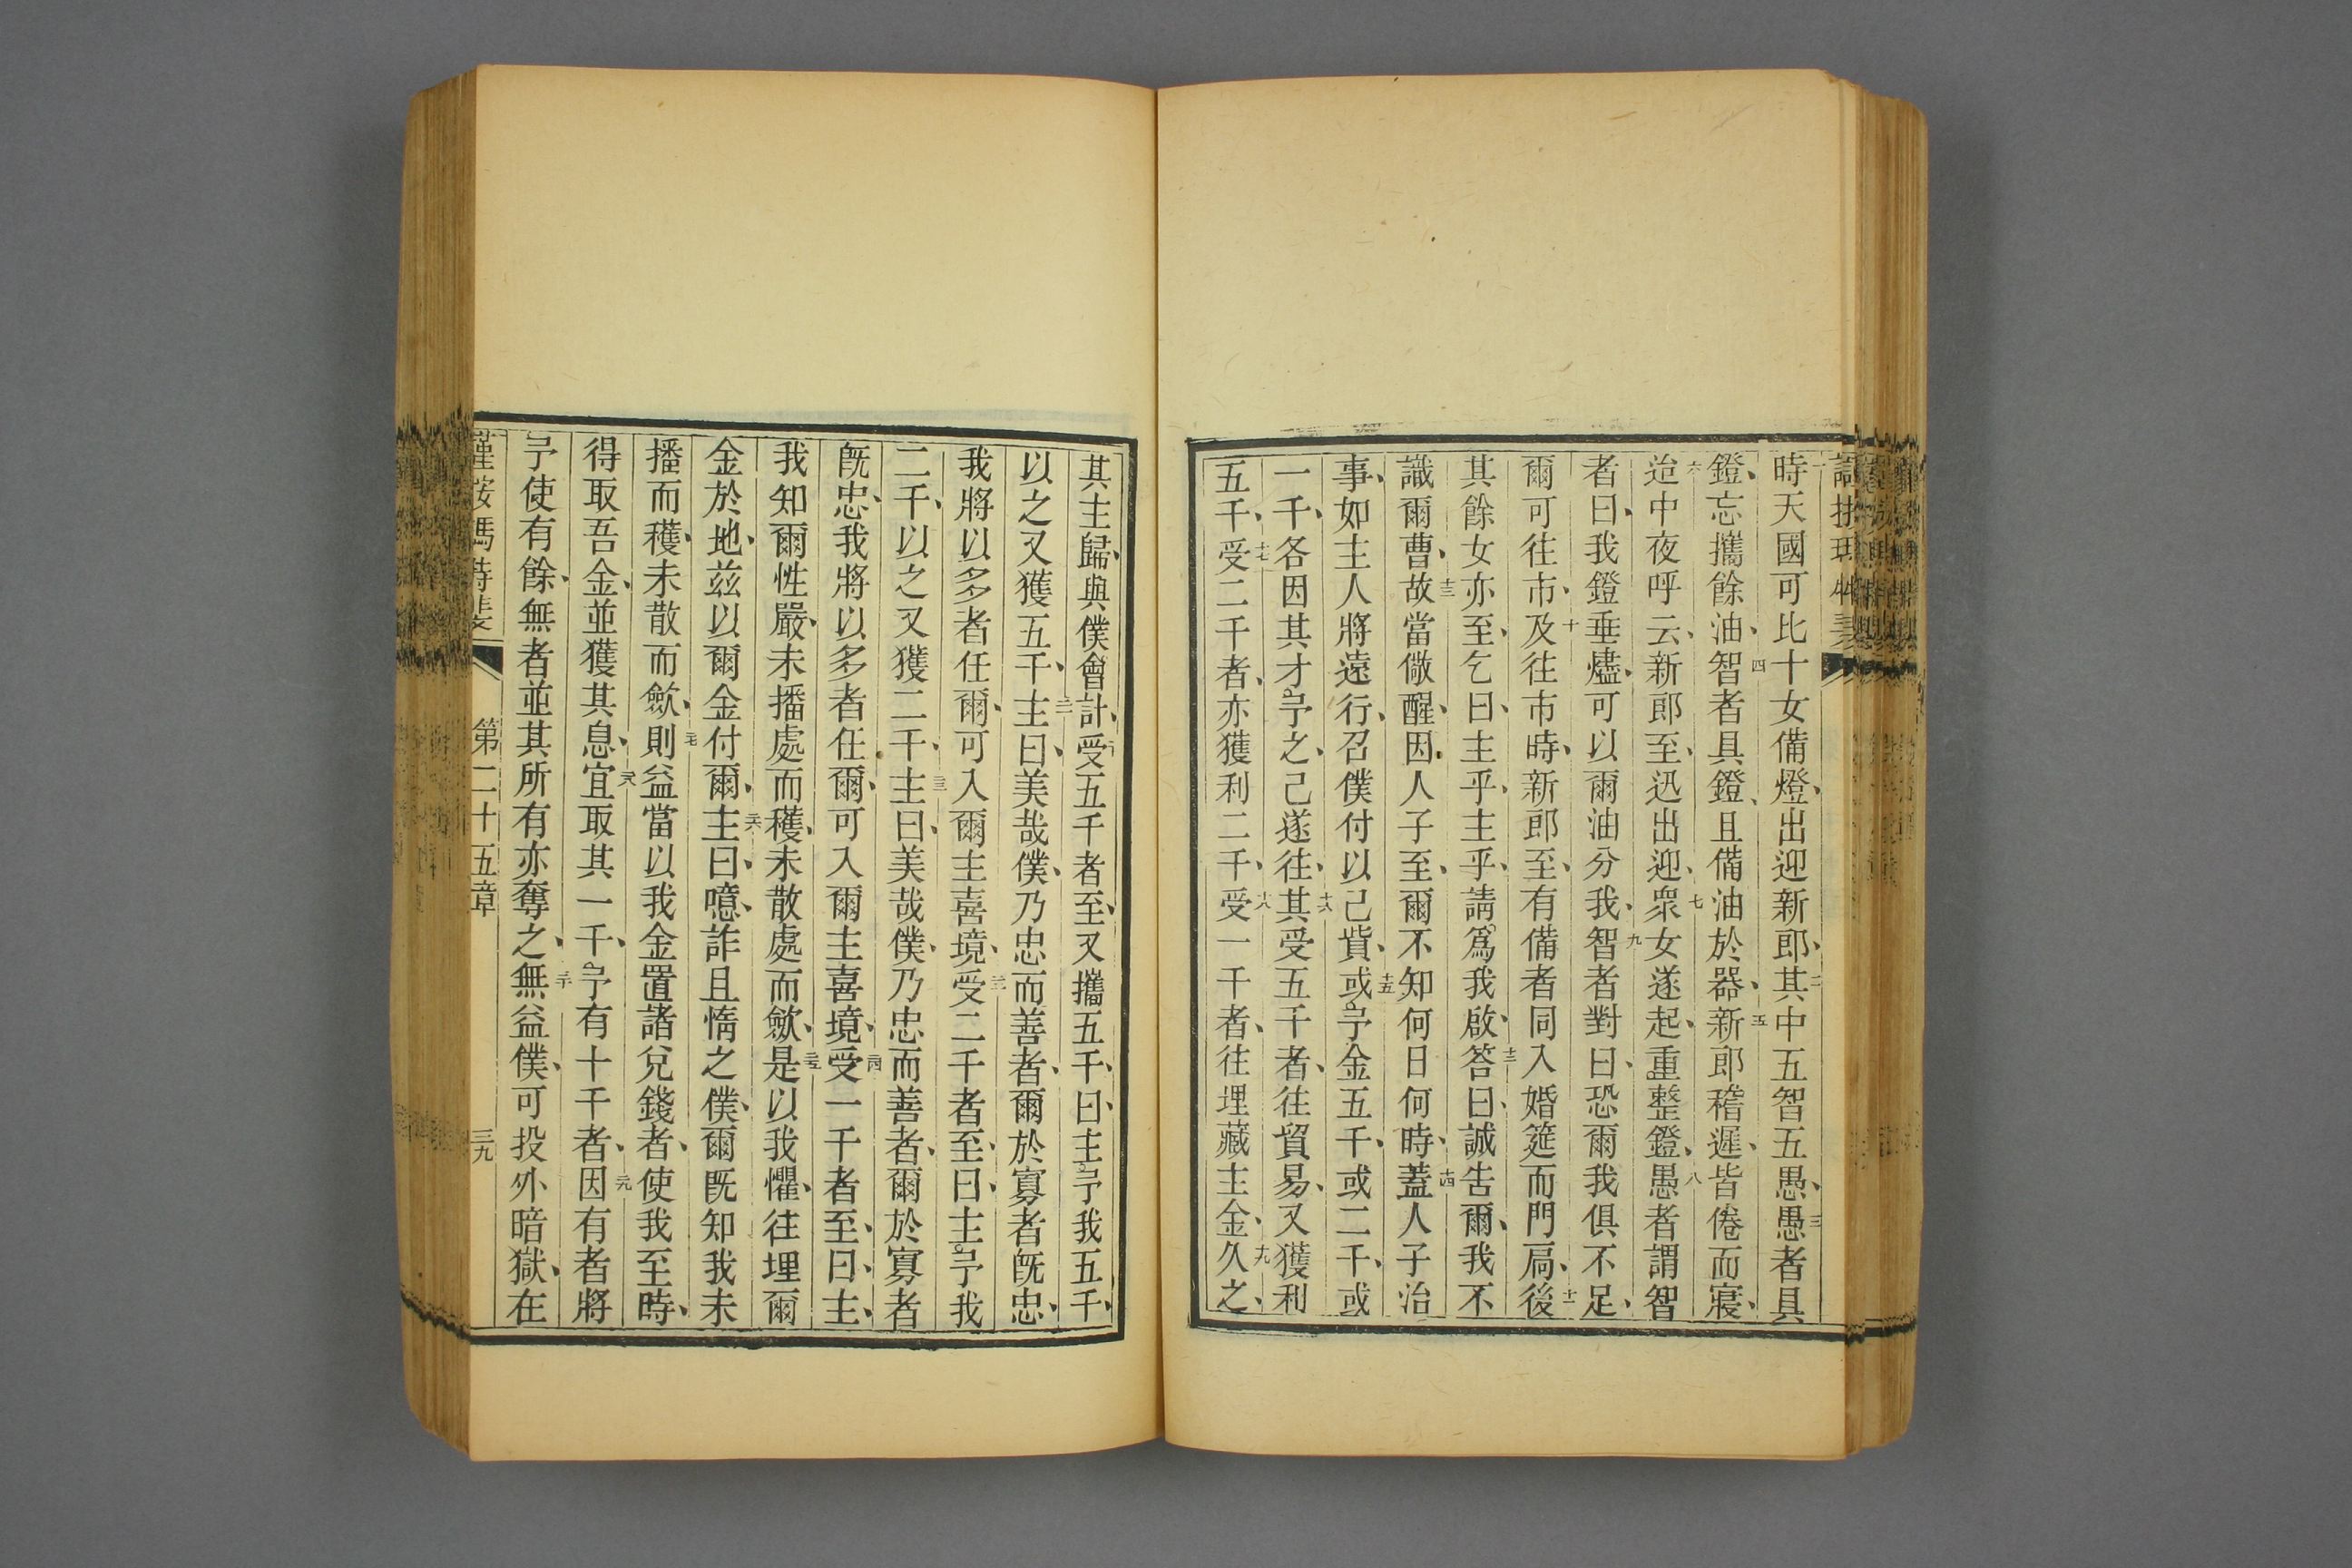 一時天國可比十女備燈、出迎新郎、二其中五智五愚、三愚者具
鐙、忘攜餘油、四智者具鐙、且備油於器、五新郎稽遲、皆倦而寢、
六迨中夜呼云、新郎至、迅出迎、七衆女遂起、重整鐙、八愚者謂智
者曰、我鐙垂燼、可以爾油分我、九智者對曰、恐爾我俱不足、
爾可往市、十及往市時、新郎至、有備者同入婚筵而門扃、十一後
其餘女亦至、乞曰、主乎、主乎、請爲我啟、十二答曰、誠告爾、我不
識爾曹、十三故當儆醒、因人子至、爾不知何日何時、十四蓋人子治
事、如主人將遠行、召僕付以己貲、十五或予金五千、或二千、或
一千、各因其才予之、己遂往、十六其受五千者、往貿易、又獲利
五千、十七受二千者、亦獲利二千、十八受一千者、往埋藏主金、十九久之、
其主歸、與僕會計、二十受五千者至、又攜五千、曰、主予我五千、
以之又獲五千、二一主曰、美哉僕、乃忠而善者、爾於寡者旣忠、
我將以多者任爾、可入爾主喜境、二二受二千者至、曰、主予我
二千、以之又獲二千、二三主曰、美哉僕、乃忠而善者、爾於寡者
旣忠、我將以多者任爾、可入爾主喜境、二四受一千者至、曰、主、
我知爾性嚴、未播處而穫、未散處而歛、二五是以我懼、往埋爾
金於地、兹以爾金付爾、二六主曰、噫、詐且惰之僕、爾旣知我未
播而穫、未散而歛、二七則益當以我金置諸兌錢者、使我至時、
得取吾金、並獲其息、二八宜取其一千、予有十千者、二九因有者將
予使有餘、無者並其所有亦奪之、三十無益僕、可投外暗獄、在
第二十五章
三九